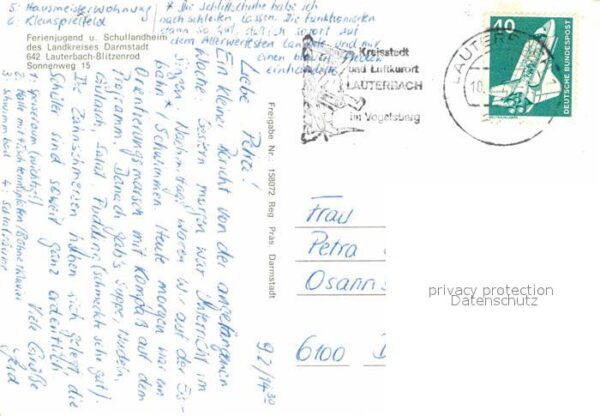 5: Hausmeisterwohnung
6: Kleinspielfeld
Ferienjugend u. Schullandheim
des Landkreises Darmstadt
642 Lauterbach-Blitzenrod
Sonnenweg 15
* Ihr Schlittschuhe habe ich
nach schleifen lassen. Die funktionierten
dann so gut, daß ich sofort auf
dem Allerwertesten landete und mir
einen blauen
einhandelte
Kreisstadt
und Luftkurort
LAUTERBACH
im Vogelsberg
LAUTERB
10.
40
DEUTSCHE BUNDESPOST
Freigabe Nr.: 158072 Reg. Präs. Darmstadt
9.2./14 30
Liebe Petra!
Ein kleiner Bericht von der angefangenen
Woche: Gestern morgen war Unterricht im
Sitzen. Nachmittags waren wir auf der Eis-
bahn * / Schwimmen. Heute morgen war ein
Orientierungsmarsch mit Kompaß auf dem
Programm. Danach gab's Suppe, Nudeln,
Gulasch, Salat, Pudding (schmeckte sehr gut).
Die Zahnschmerzen haben sich gelegt, die
Schüler sind soweit ganz ordentlich
Viele Grüße
Gerd
2: Halle mit Tischtennisplatten / Bühne
3: Schwimmbad 4: Schlafräume
Frau
Petra
Osann
6100 D
privacy protection
Datenschutz